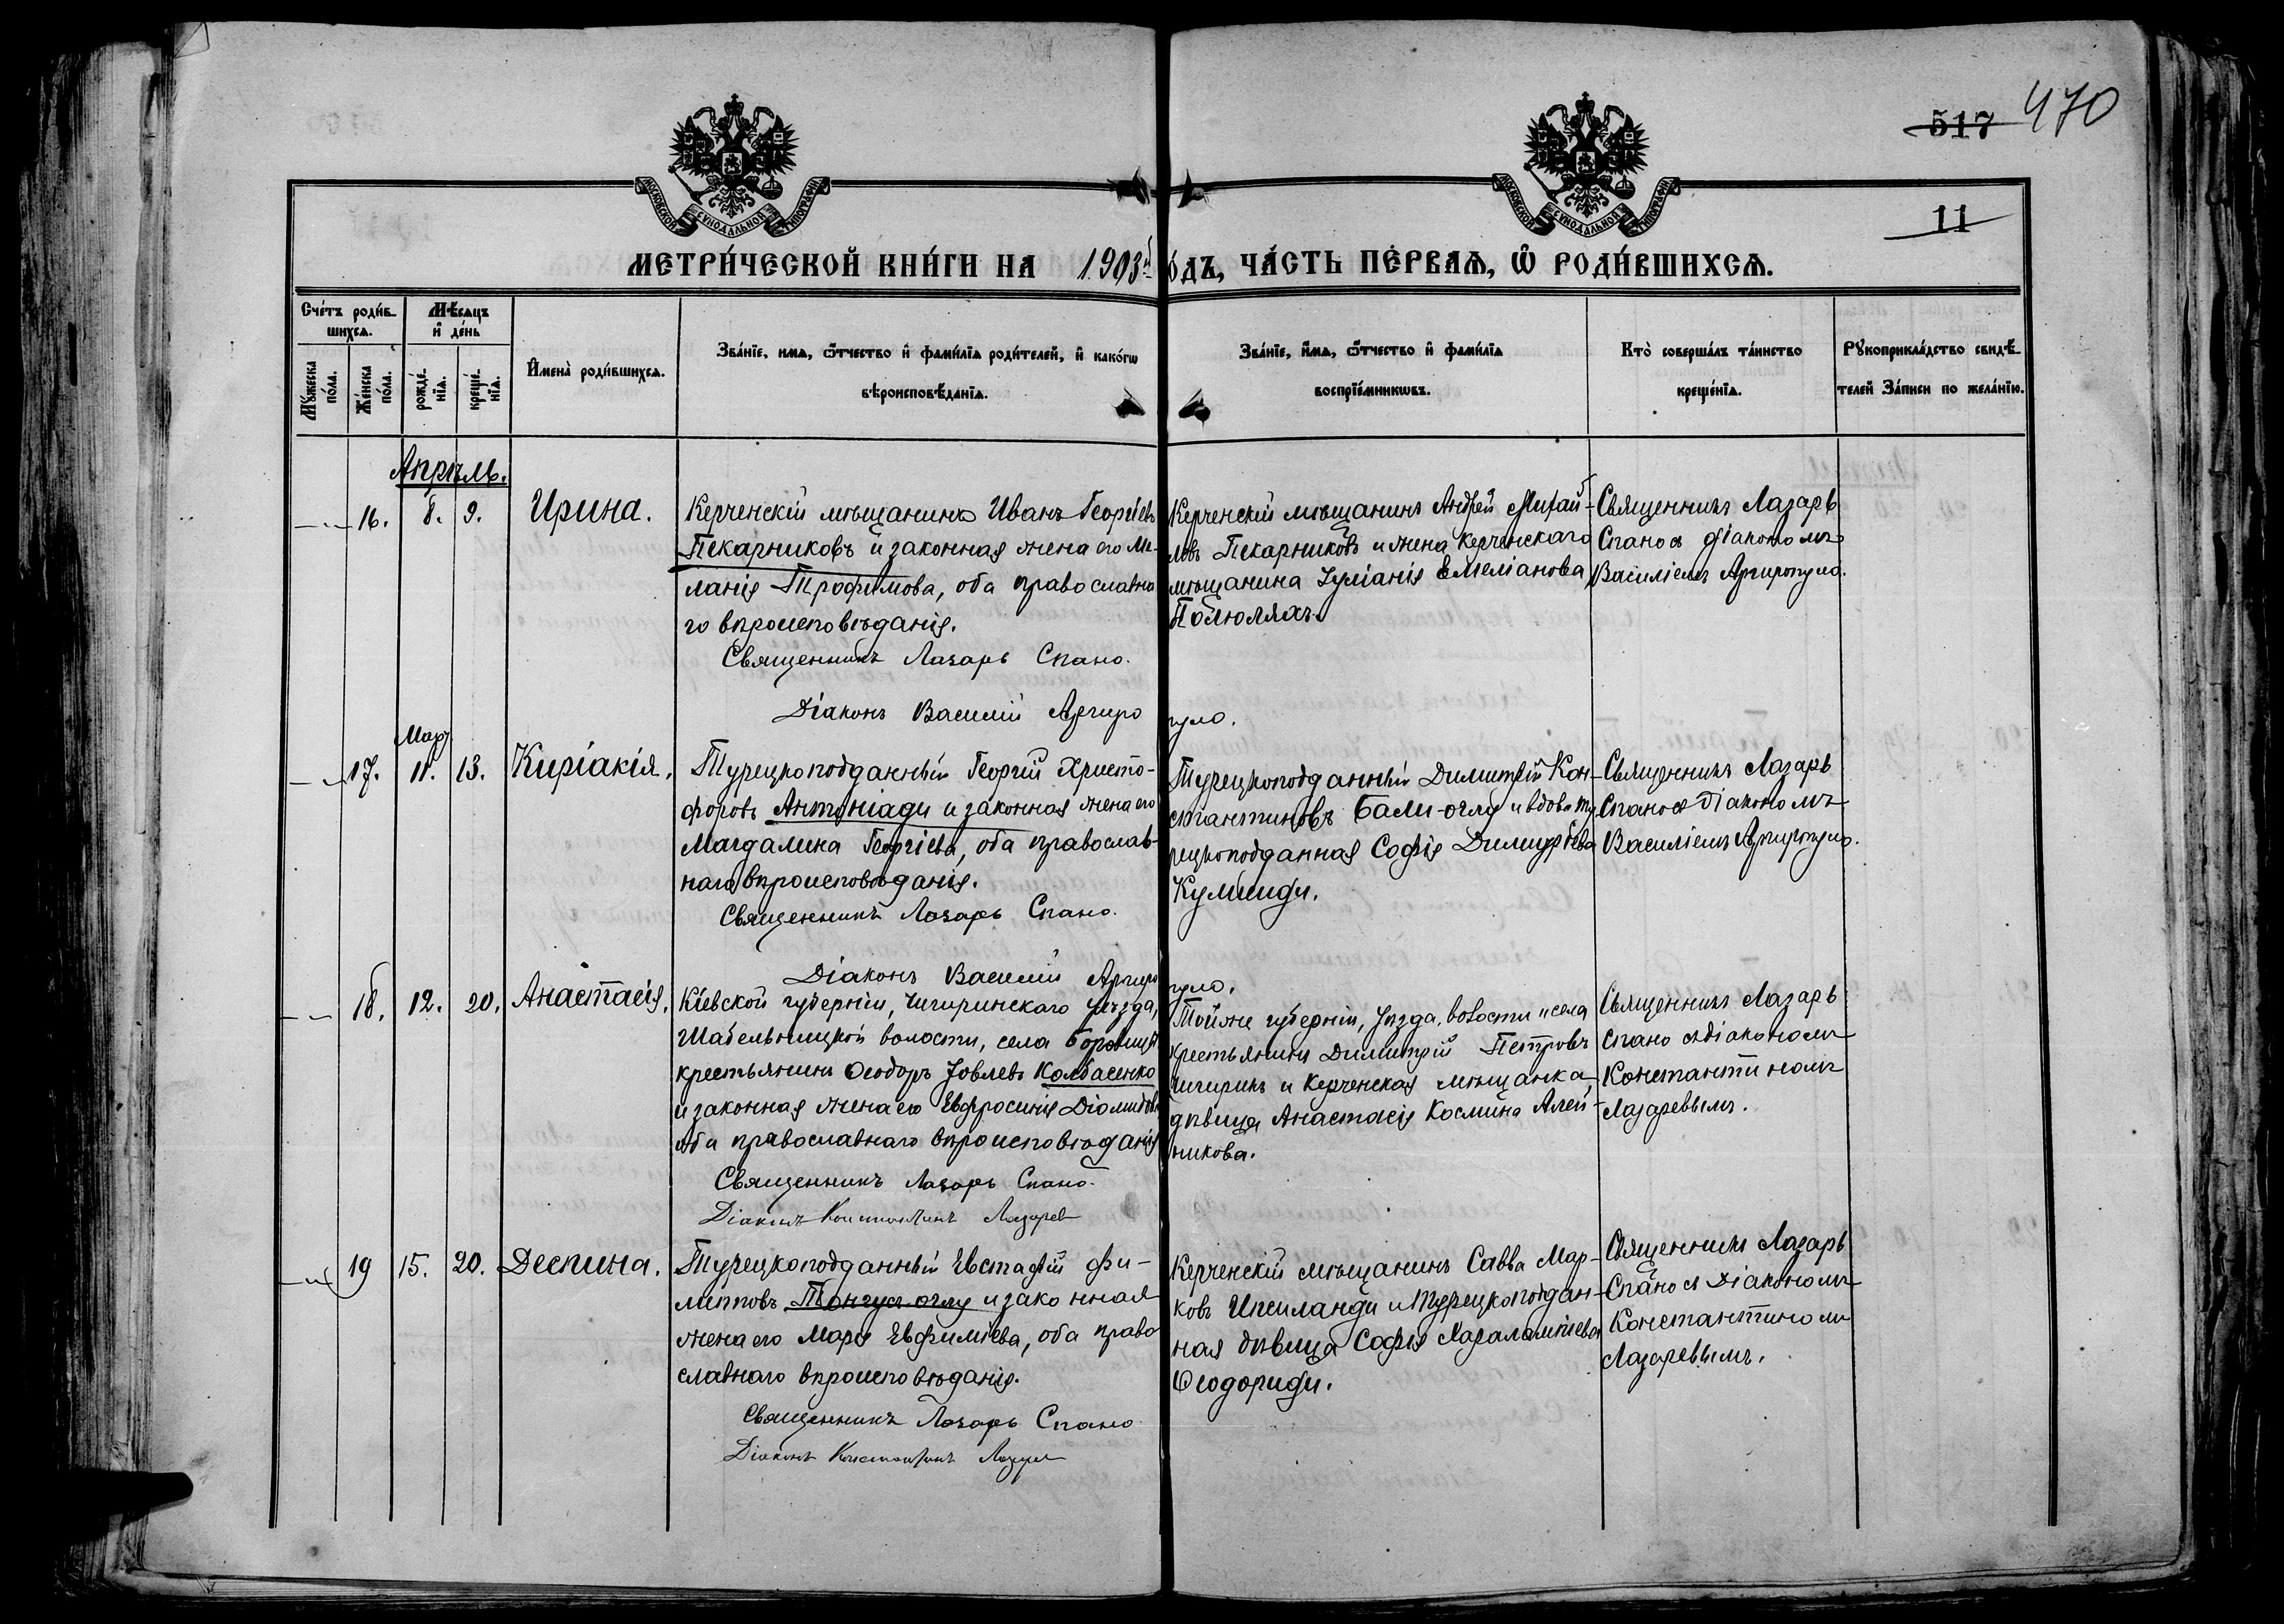 517 470
МОСКОВСКОЙ СѴНОДАЛЬНОЙ ТИПОГРАФІИ
МОСКОВСКОЙ СѴНОДАЛЬНОЙ ТИПОГРАФІИ
11
МЕТРИ́ЧЕСКОЙ КНИ́ГИ НА 1903й о́дъ, ЧА́СТЬ ПЕ́РВАѦ, Ѿ РОДИ́ВШИХСѦ.
Сче́тъ роди́в-
шихсѧ.
Мѣ́сѧцъ
и҆ де́нь
Мꙋ́жеска по́ла.
Же́нска по́ла.
рожде́-нїѧ.
креще́-нїѧ.
И҆мена̀ роди́вшихсѧ.
Зва́нїе, имѧ, ѻ҆́тчество и҆ фами́лїѧ роди́телей, и҆ како́гѡ
вѣроисповѣ́данїѧ.
Зва́нїе, и҆́мѧ, ѻ҆́тчество и҆ фами́лїѧ
воспрїе́мникѡвъ.
Кто̀ соверша́лъ та́инство
креще́нїѧ.
Рꙋкоприкла́дство свидѣ́-
телей За́писи по жела́нїю.
Апрѣль.
16. 8. 9. Ирина.
Керченскій мѣщанинъ Иванъ Георгіевъ
Пекарниковъ и законная жена его Ме-
ланія Трофимова, оба православна
го вѣроисповѣданія.
Священникъ Лазарь Спано.
Діаконъ Василій Аргиро
пуло.
Керченскій мѣщанинъ Андрей Михай-
ловъ Пекарниковъ и жена Керченскаго
мѣщанина Іуліанія Емеліанова
Священникъ Лазарь
Спано съ діакономъ
Василіемъ Аргиропуло.
Мар.
17. 11. 13. Киріакія.
Турецкоподданный Георгій Христо-
форовъ Антоніади и законная жена его
Магдалина Георгіева, оба православ-
наго вѣроисповѣданія.
Священникъ Лазарь Спано.
Діаконъ Василій Аргиро
пуло.
Турецкоподданный Димитрій Кон-
стантиновъ Бали-оглу и вдова ту
рецкоподданная Софія Димитріева
Священникъ Лазарь
Спано съ Діакономъ
Василіемъ Аргиропуло.
18. 12. 20. Анастасія.
Кіевской губерніи, Чигиринскаго уѣзда,
Шабельницкой волости, села Боровицы
крестьянинъ Ѳеодоръ Іовлевъ Колбасенко
и законная жена его Евфросинія Діомидова
оба православнаго вѣроисповѣданія
Священникъ Лазарь Спано.
Діаконъ Константинъ Лазарев
Той же губерніи, уѣзда, волости и села
крестьянинъ Димитрій Петровъ
Чигиринъ и Керченская мѣщанка,
дѣвица Анастасія Космина Алей-
никова.
Священникъ Лазарь
Спано съ діакономъ
Константиномъ
Лазаревымъ.
19 15. 20. Деспина.
Турецкоподданный Евстафій Фи-
липповъ Тонгуз-оглу и законная
жена его Марія Евфиміева, оба право
славнаго вѣроисповѣданія.
Священникъ Лазарь Спано
Діаконъ Константинъ Лазарев
Керченскій мѣщанинъ Савва Мар-
ковъ Ипсиланди и Турецкоподдан-
ная дѣвица Софія Харалампіева
Ѳеодориди.
Священникъ Лазарь
Спано съ Діакономъ
Константиномъ
Лазаревымъ.